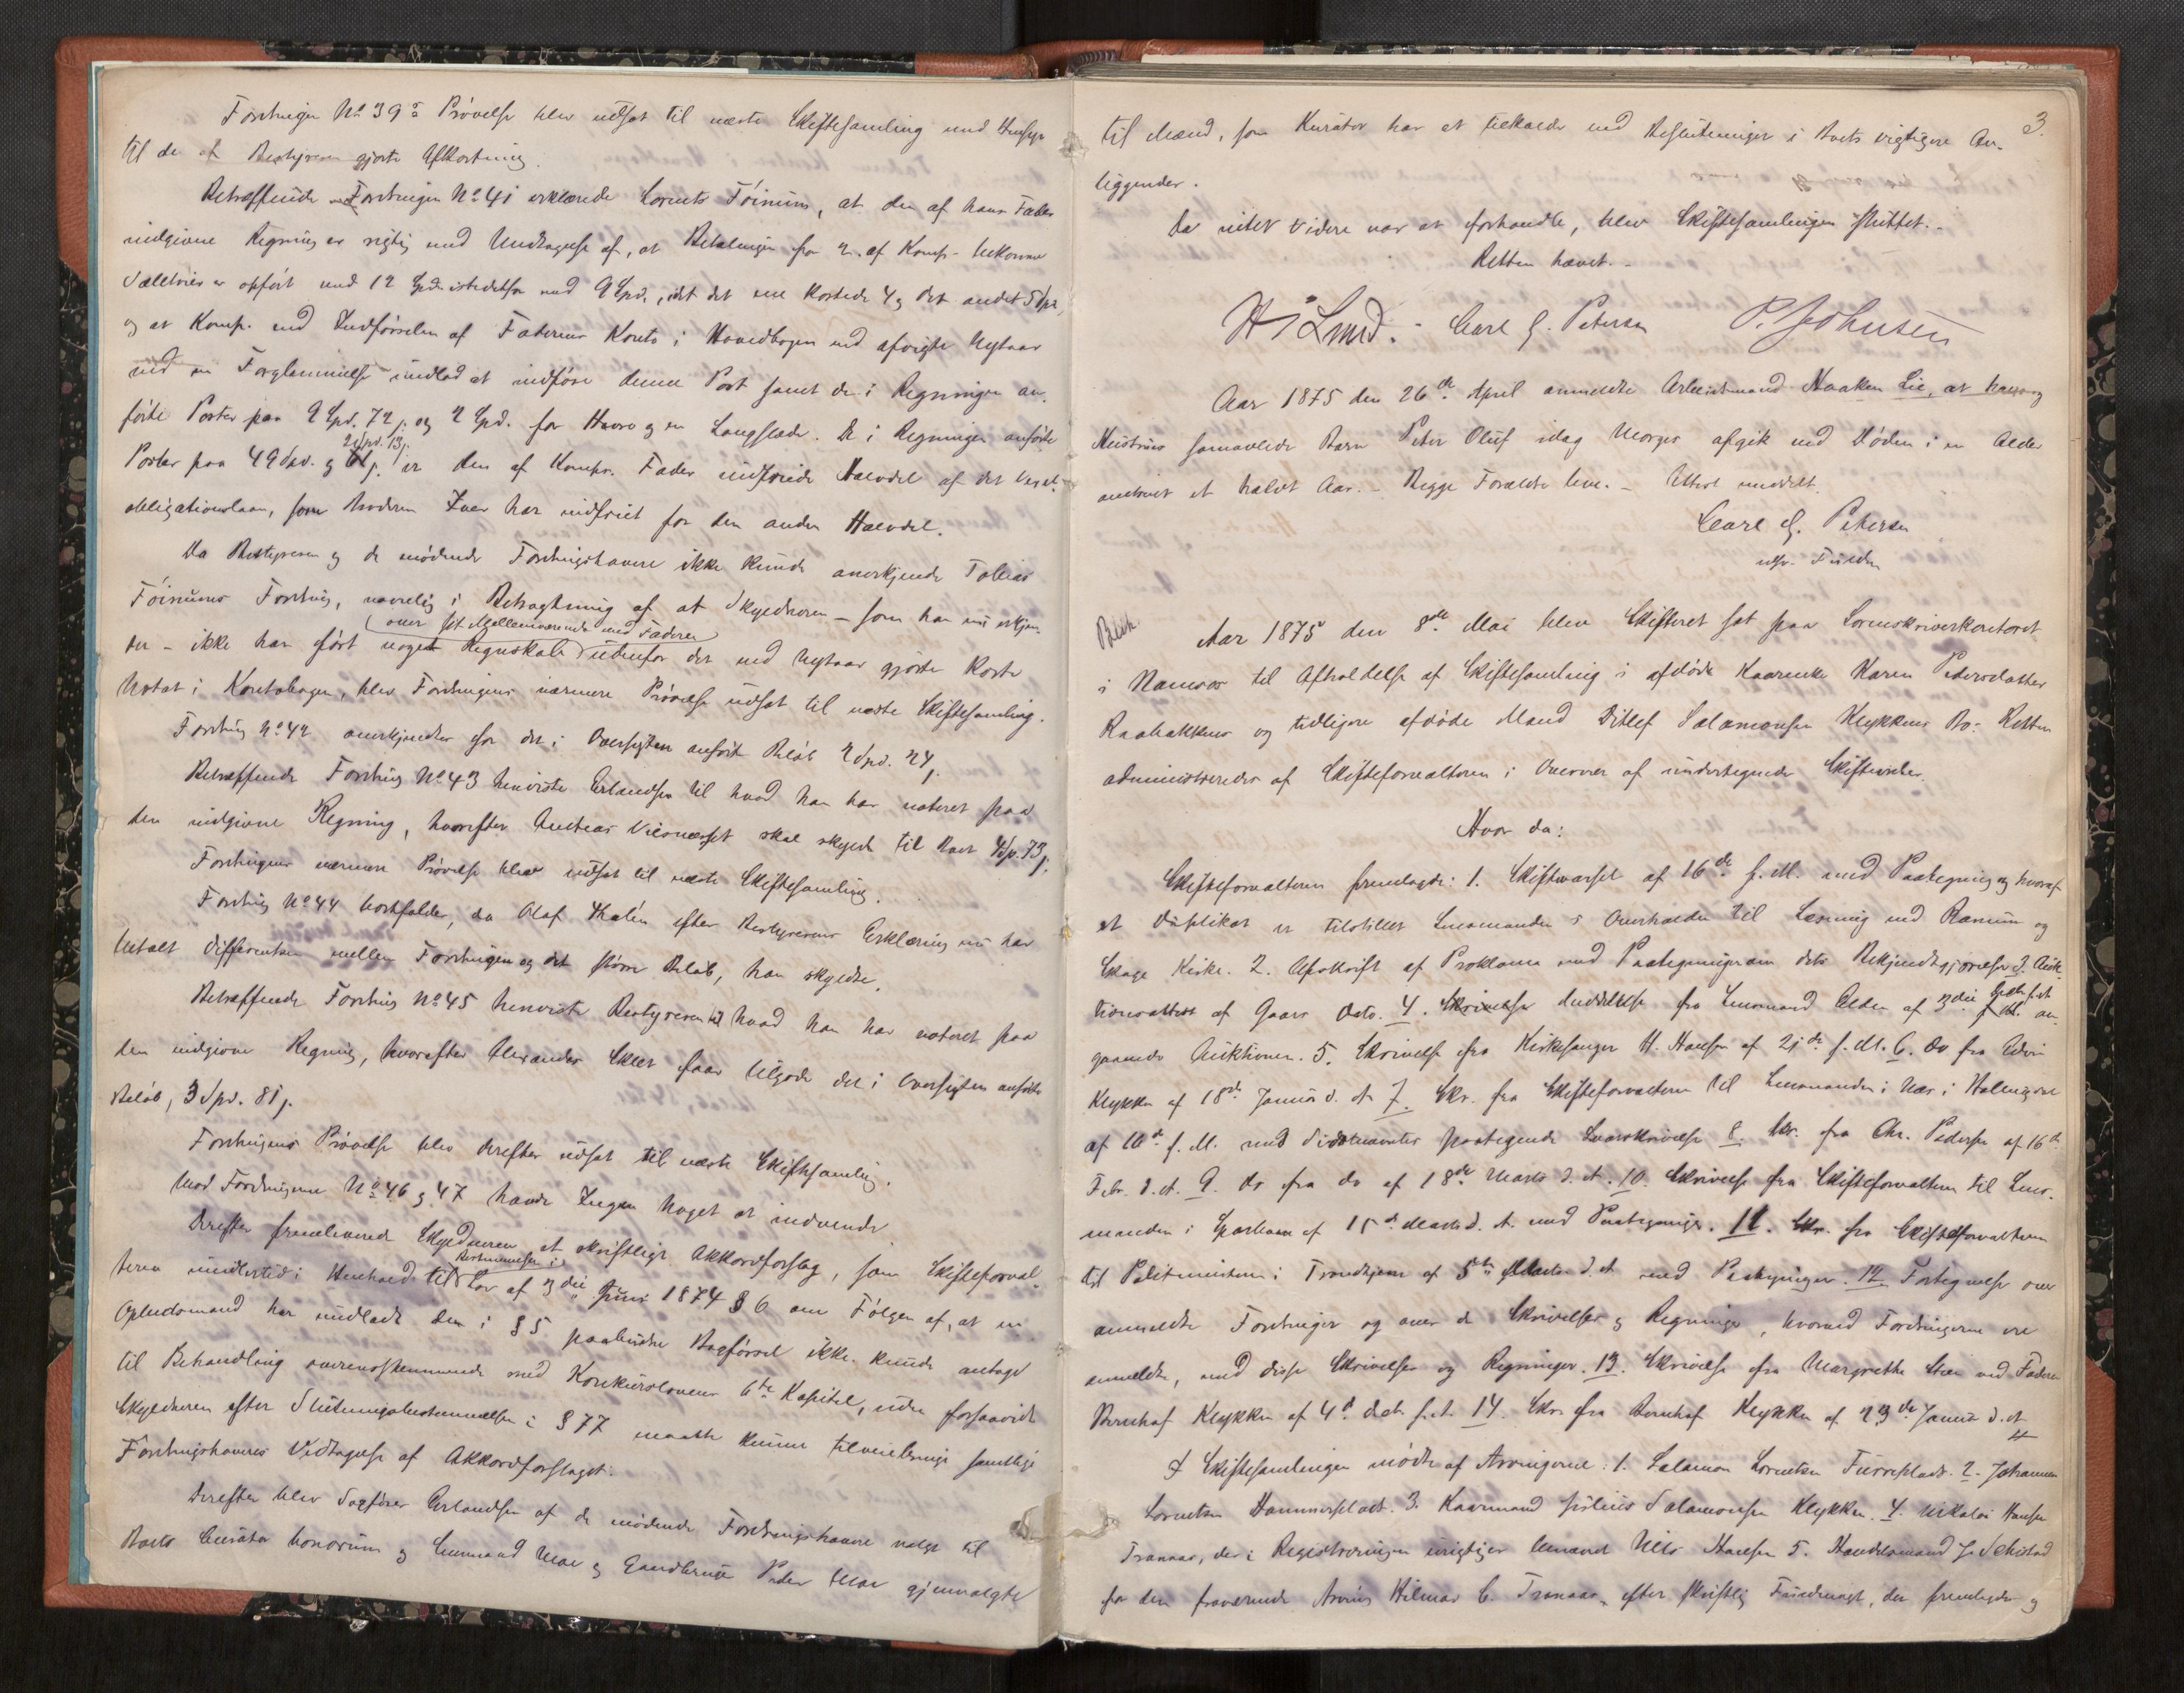 Fordringen No 39s Prøvelse blev udsat til næste Skiftesamling med Hensyn
til den af Bestyreren gjorte Afkortning.
Betræffende Fordringen No 41 erklærede Lornts Föinum, at den af hans Fader
indgivne Regning er rigtig med Undtagelse af, at Betalingen for 2 af Komp.
er opført med 12 Spd. istedetfor med 9 Spd., idet det ene kostede 4 og det andet 5 Spd.,
og at Komp. ved Indførselen af Faderens Konto i Hovedbogen ved afvigte Nytaar
ved en Forglemmelse undlod at indføre denne Post samt de i Regningen an-
førte Poster paa 2 Spd. 72 s. og 2 Spd. for Havre og en Langslæde. De i Regningen anførte
Poster paa 49 Spd. og 21 Spd. 13 s. er den af Komp. Fader indfriede Halvdel af det
obligationslaan, som Broderen Iver har indfriet for den anden Halvdel.
Da Bestyreren og de mødende Fordringshavere ikke kunde anerkjende Tobias
Föinums Fordring, navnlig i Betragtning af at Skyldneren – som han nu erkjen-
der – ikke har ført noget Regnskab (over sit Mellemværende med Faderen) udenfor det ved Nytaar gjorte korte
Notat i Kontobogen, blev Fordringens nærmere Prøvelse udsat til næste Skiftesamling.
Fordring No 42 anerkjendtes for det i Oversigten anførte Beløb 2 Spd. 24 s.
Betræffende Fordring No 43 henviste Erlandsen til hvad han har noteret paa
den indgivne Regning, hvorefter Andreas skal skylde til Boet 4 Sp. 73 s.
Fordringens nærmere Prøvelse blev udsat til næste Skiftesamling.
Fordring No 44 bortfalder, da Olaf efter Bestyrerens Erklæring nu har
betalt Differentsen mellem Fordringen og det større Beløb, han skyldte.
Betræffende Fordring No 45 henviste Bestyreren til hvad han har noteret paa
den indgivne Regning, hvorefter Alexander faar tilgode det i Oversigten anførte
Beløb, 3 Spd. 81 s.
Fordringens Prøvelse blev derefter udsat til næste Skiftesamling.
Mod Fordringerne No 46 og 47 havde Ingen Noget at indvende.
Derefter fremleverede Skyldneren et skriftligt Akkordforslag, som Skifteforval-
teren imidlertid i Henhold til Bestemmelsen i Lov af 3die Juni 1874 § 6 om Følgen af, at en
Opbudsmand har undladt den i § 5 paabudne Bogførsel ikke kunde antage
til Behandling overensstemmende med Konkurslovens 6te Kapitel, uden forsaavidt
Skyldneren efter Slutningsbestemmelsen i § 77 maatte kunne tilveiebringe samtlige
Fordringshaveres Vedtagelse af Akkordforslaget.
Derefter blev Sagfører Erlandsen af de mødende Fordringshavere valgt til
Boets Curator bonorum og Lensmand Moe og Gaardbruger Peder Moe gjenvalgte
3.
til Mænd, som Kurator har at tilkalde ved Beslutninger i Boets vigtigere An-
liggender.
Da intet videre var at forhandle, blev Skiftesamlingen sluttet.
Retten hævet.
H Lund. Carl G. Petersen P. Johnsen
Aar 1875 den 26de April anmeldte Arbeidsmand Haaken Lie, at hans og
Hustrues samavlede Barn Peter Oluf idag Morges afgik ved Døden i en Alder
omtrent et halvt Aar. – Begge Forældre leve. – Attest meddelt.
Carl G. Petersen
Aar 1875 den 8de Mai blev Skifteret sat paa Sorenskriverkontoret
i Namsos til Afholdelse af Skiftesamling i afdøde Kaarenke Karen Pedersdatter
Raabakkens og tidligere afdøde Mand Ditlef Salamonsen Klykkens Bo. Retten
administreredes af Skifteforvalteren i Overvær af undertegnede Skiftevidner.
Hvor da:
Skifteforvalteren fremlagde: 1. Skiftevarsel af 16de f. M. med Paategning og hvoraf
et Duplikat er tilstillet Lensmanden i Overhalden til Læsning ved Ranum og
Skage Kirke. 2. Afskrift af Proklama med Paategninger om dets Bekjendtgjørelse. 3. Auk-
tionsattest af Gaars Dato. 4. Meddelelse fra Lensmand Elden af 3die an-
gaaende Auktionen. 5. Skrivelse fra Kirkesanger H. Hansen af 21de f. M. 6. do fra Edvin
Klykken af 18de Januar d. A. 7. Skr. fra Skifteforvalteren til Lensmanden i
af 10de f. M. med Sidstnævntes paategnede Svarskrivelse. 8. Skr. fra Chr. Pedersen af 16de
Febr. d. A. 9. do fra do af 18de Marts d. A. 10. Skrivelse fra Skifteforvalteren til Lens-
manden i Sparbuen af 15de Marts d. A. med Paategninger. 11. Skr. fra Skifteforvalteren
til Politimesteren i Trondhjem af 5te Marts d. A. med Paategninger. 12. Fortegnelse over
anmeldte Fordringer og over de Skrivelser og Regninger, hvorved Fordringerne ere
anmeldte, med disse Skrivelser og Regninger. 13. Skrivelse fra Margrethe ved Faderen
Bernhof Klykken af 4de Decb. f. A. 14. Skr. fra Bernhof Klykken af 23de Januar d. A.
I Skiftesamlingen mødte af Arvingerne: 1. Salamon Lorntsen Furreplads. 2. Johannes
Lorntsen Hammerplads. 3. Kaarmand Julius Salamonsen Klykken. 4. Nikolai Hansen
Tranaas, der i Registreringen urigtigen benævnt Nils Hansen. 5. Handelsmand J. Sekstad
for den fraværende Arving Hilmar C. Tranaas, efter skriftlig Fuldmagt, der fremlagdes og